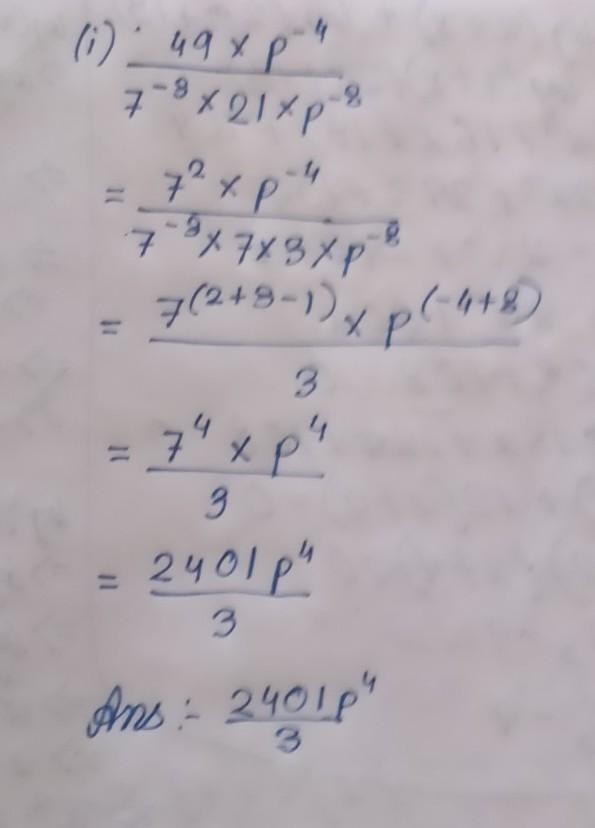 (i) 49 × p⁻⁴ / 7⁻³ × 21 × p⁻⁸
= 7² × p⁻⁴ / 7⁻³ × 7 × 3 × p⁻⁸
= 7⁽²⁺³⁻¹⁾ × p⁽⁻⁴⁺⁸⁾ / 3
= 7⁴ × p⁴ / 3
= 2401p⁴ / 3
Ans :- 2401p⁴ / 3